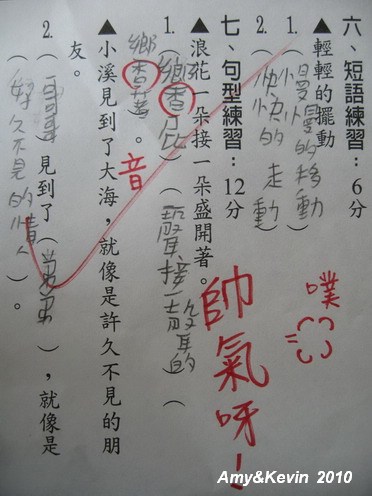 六、短語練習：6分
▲輕輕的擺動
1.（慢慢的移動）
2.（快快的走動）
七、句型練習：12分
▲浪花一朵接一朵盛開著。
1.（鄉香屁）（一聲接一聲的）（
鄉香著）。
音
▲小溪見到了大海，就像是許久不見的朋
友。
2.（哥哥）見到了（弟弟），就像是
（好久不見的情人）。
噗
帥氣呀！
Amy&Kevin 2010